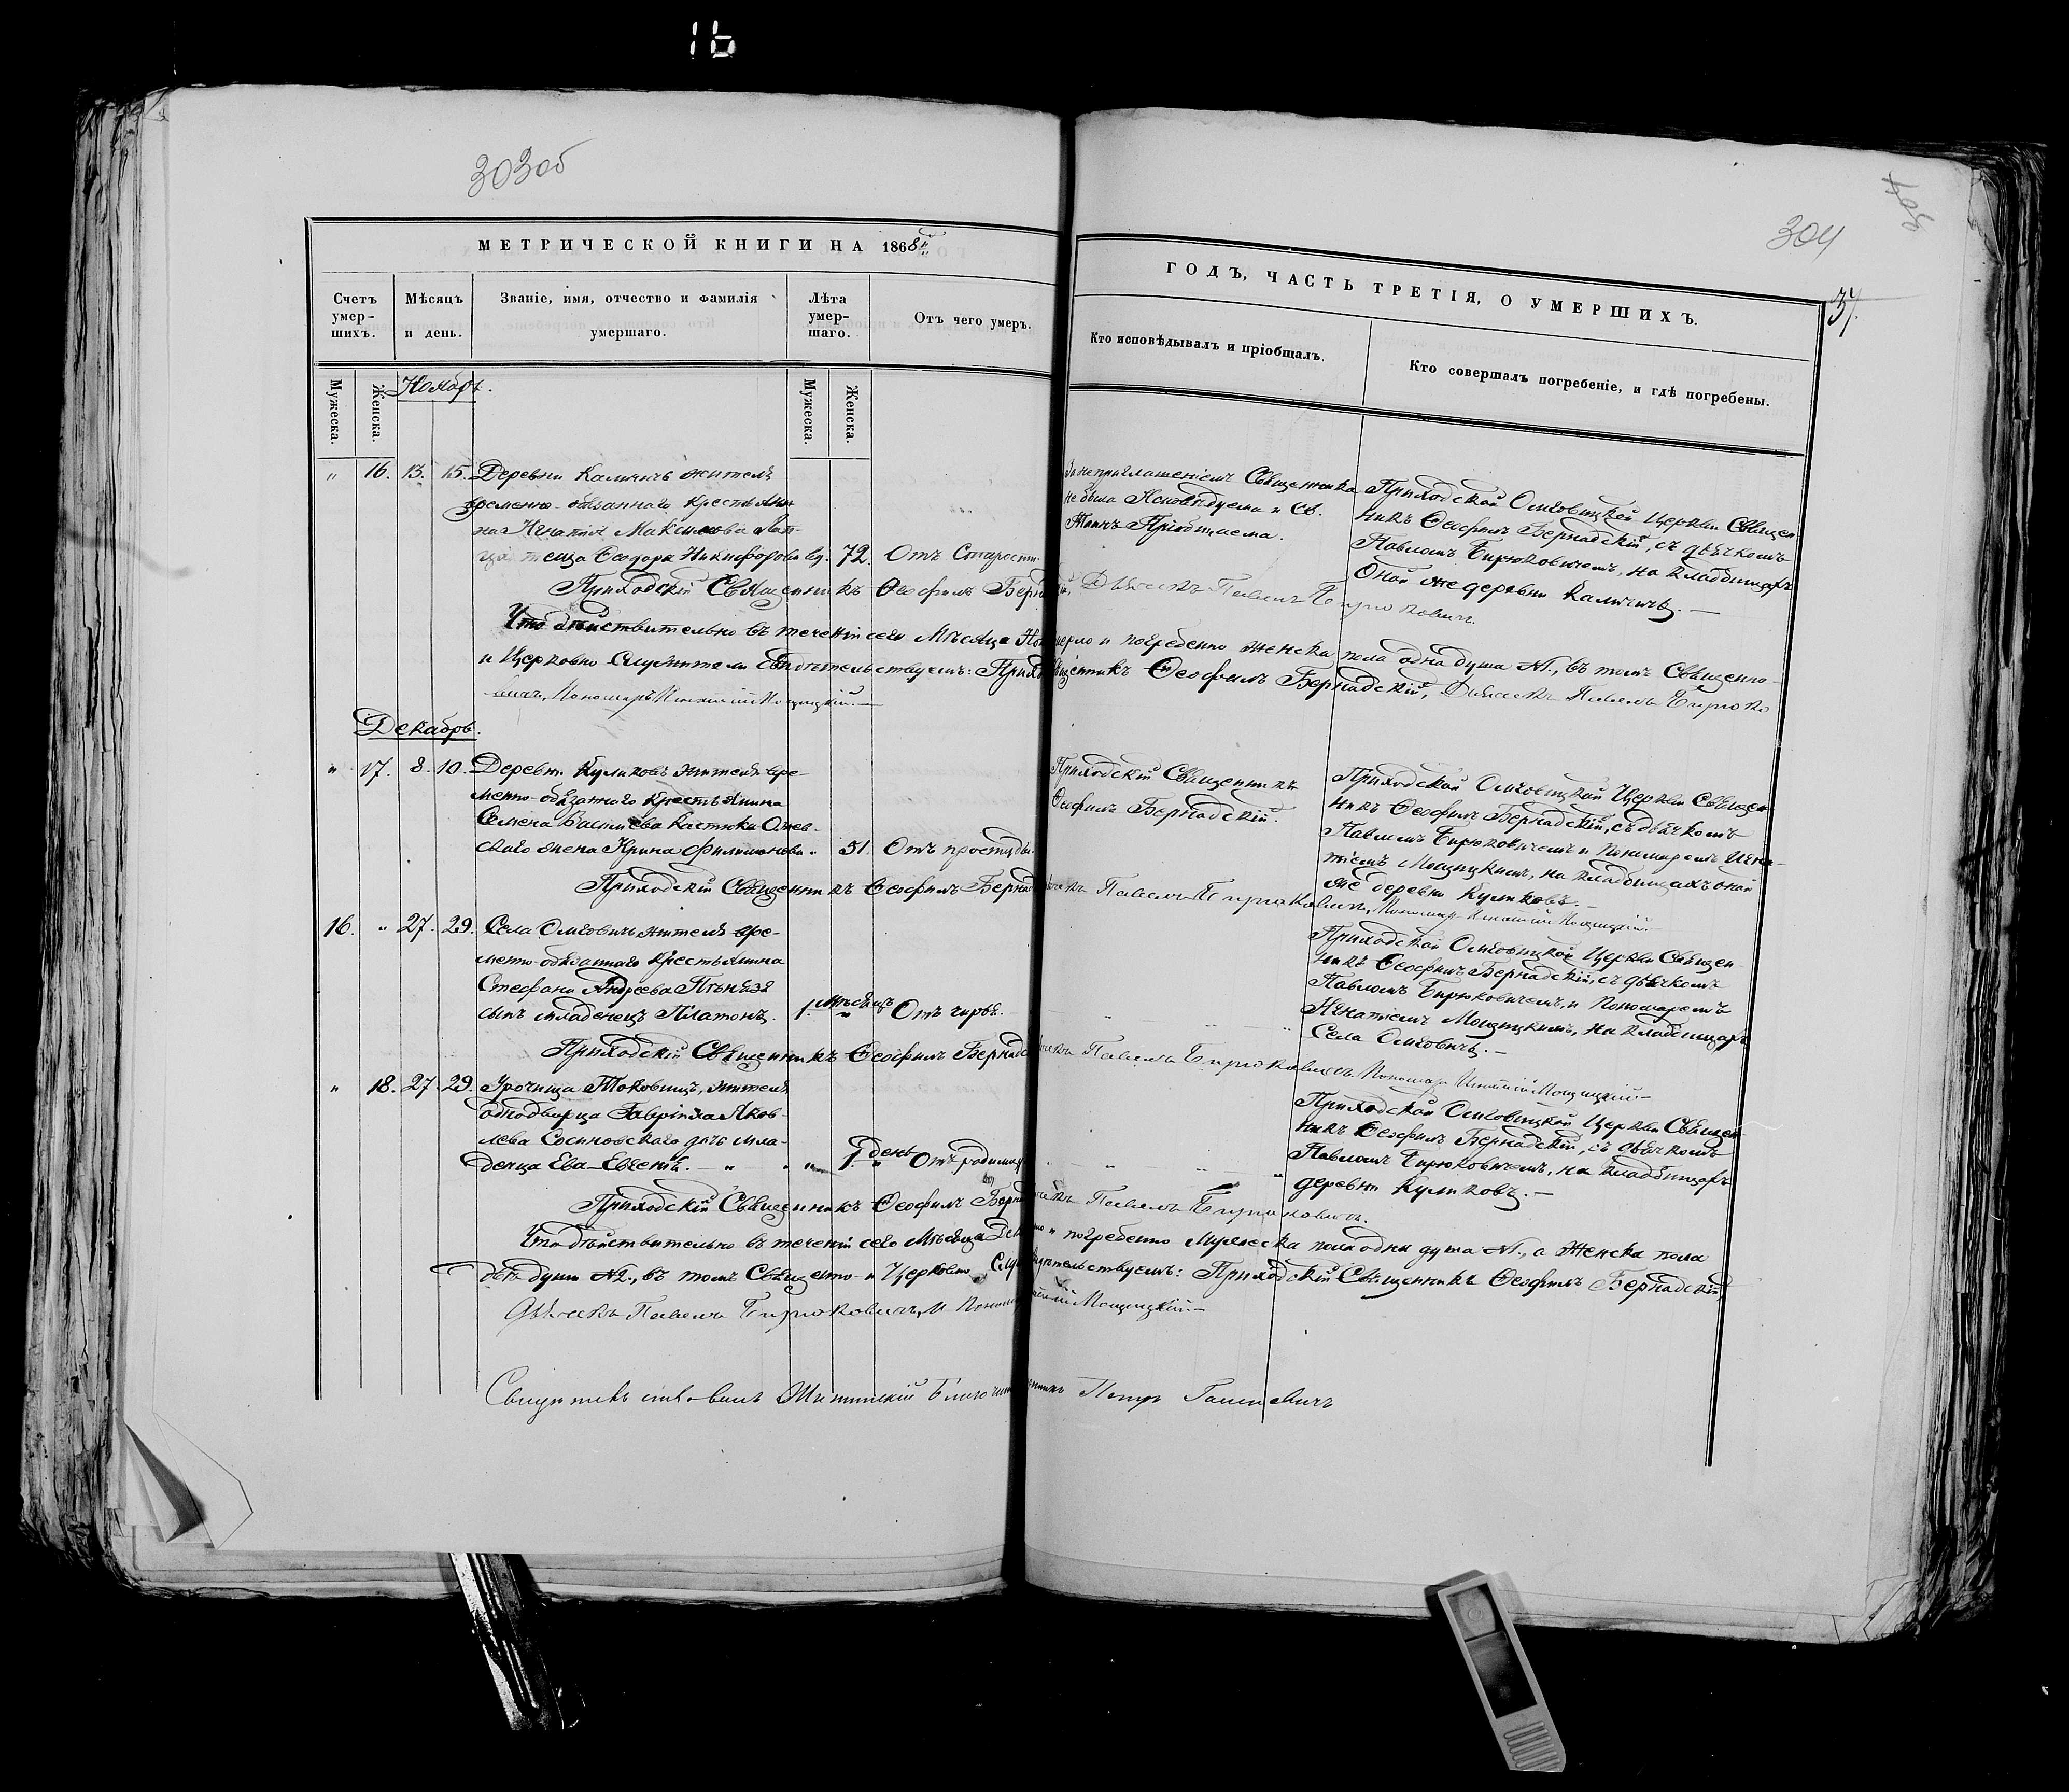 16
303об
304
304
37.
МЕТРИЧЕСКОЙ КНИГИ НА 1868й
ГОДЪ, ЧАСТЬ ТРЕТІЯ, О УМЕРШИХЪ.
Счетъ умер-
шихъ.
Мѣсяцъ
и день.
Званіе, имя, отчество и фамилія
умершаго.
Лѣта
умер-
шаго.
Отъ чего умеръ.
Кто исповѣдывалъ и пріобщалъ.
Кто совершалъ погребеніе, и гдѣ погребены.
Мужеска.
Женска.
Мужеска.
Женска.
Ноябрь.
" 16. 13. 15. Деревни жителя
временно-обязаннаго крестьяни-
на Игнатія Максимова
теща Ѳеодора Никифорова вд. 72. Отъ старости.
За неприглашеніемъ Священника
не была Исповѣдуема и Св.
Таинъ Пріобщаема.
Приходской Олговицкой Церкви Священ-
никъ Ѳеофилъ Бернадскій, съ дьячкомъ
Павломъ Бирюковичемъ, на кладбищахъ
Оной же деревни
Приходскій Священникъ Ѳеофилъ Дьячекъ Павелъ Бирюковичъ.
Что дѣйствительно въ теченіи сего Мѣсяца и погребено женска пола одна душа №1., въ томъ Священно-
и Церковно Служители Свидѣтельствуемъ: Ѳеофилъ Бернадскій, Дьячекъ Павелъ Бирюко-
вичъ, Пономарь Игнатій Мощицкій.
Декабрь.
" 17. 8. 10. Деревни Куликовъ жителя вре-
менно-обязаннаго Крестьянина
Семена Васильева
жена Ирина Филимонова " 51. Отъ простуды.
Приходскій Священникъ
Ѳеофилъ Бернадскій.
Приходской Олговицкой Церкви Священ-
никъ Ѳеофилъ Бернадскій, съ дьячкомъ
Павломъ Бирюковичемъ и Пономаремъ Игна-
тіемъ Мощицкимъ, на кладбищахъ оной
же деревни Куликовъ.
Приходскій Священникъ Ѳеофилъ Павелъ Бирюковичъ, Пономарь Игнатій Мощицкій.
16. " 27. 29. Села Олговичъ жителя вре-
менно-обязаннаго Крестьянина
Стефана Андреева
сынъ младенецъ Платонъ. 1. Мѣсяцъ Отъ
Приходской Олговицкой Церкви Священ-
никъ Ѳеофилъ Бернадскій, съ дьячкомъ
Павломъ Бирюковичемъ, и Пономаремъ
Игнатіемъ Мощицкимъ, на кладбищахъ
Села Олговичъ.
Приходскій Священникъ Ѳеофилъ Павелъ Бирюковичъ Пономарь Игнатій Мощицкій
" 18. 27. 29. Урочища жителя
однодворца Гавріила Яков-
лева Сосновскаго дочь мла-
денца Ева-Евгенія. " " 1. день Отъ
Приходской Олговицкой Церкви Священ-
никъ Ѳеофилъ Бернадскій, съ дьячкомъ
Павломъ Бирюковичемъ, на кладбищахъ
деревни Куликовъ.
Приходскій Священникъ Ѳеофилъ Павелъ Бирюковичъ.
Что дѣйствительно въ теченіи сего Мѣсяца и погребено Мужеска пола одна душа №1., а Женска пола
двѣ души №2., въ томъ Священно- и Церковно Приходскій Священникъ Ѳеофилъ Бернадскій,
Дьячекъ Павелъ Бирюковичъ, и Мощицкій.
Свидѣтельствовалъ Петръ